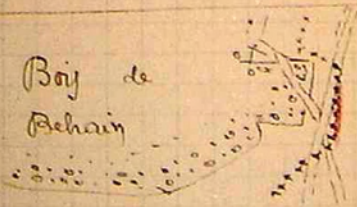 Bois de
Behain